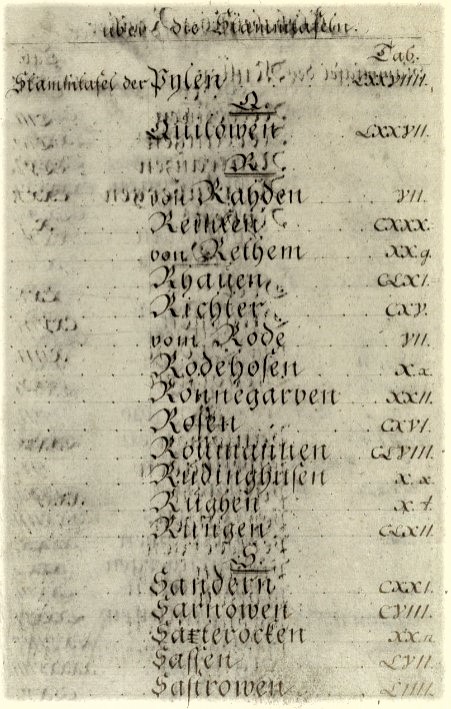 über die Stammtafeln.
Tab.
Stammtafel der Pylen LXXVIIII.
Q.
Quilowen LXXVII.
R.
von Rahden VII.
Reinken CXXX.
von Rethem XX g.
Rhauen CLXI.
Richter CXV.
vom Rode VII.
Rodehosen X. x.
Ronnegarven XXII.
Rosen CXVI.
CLVIII.
Rüdinghusen X. x.
Rughen X. t.
Rungen CLXII.
S.
Sandern CXXI.
Sarnowen CVIII.
Saxterocken XX n.
Sassen LVII.
Sastrowen LIIII.